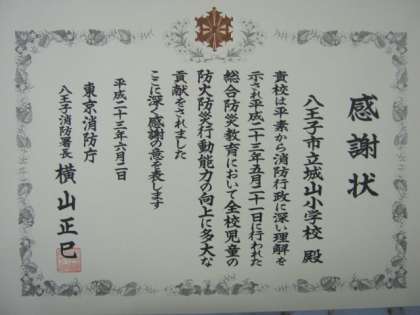 感謝状
八王子市立城山小学校 殿
貴校は平素から消防行政に深い理解を
示され平成二十三年五月二十一日に行われた
総合防災教育において全校児童の
防火防災行動能力の向上に多大な
貢献をされました
ここに深く感謝の意を表します
平成二十三年六月二日
東京消防庁
八王子消防署長 横山正巳